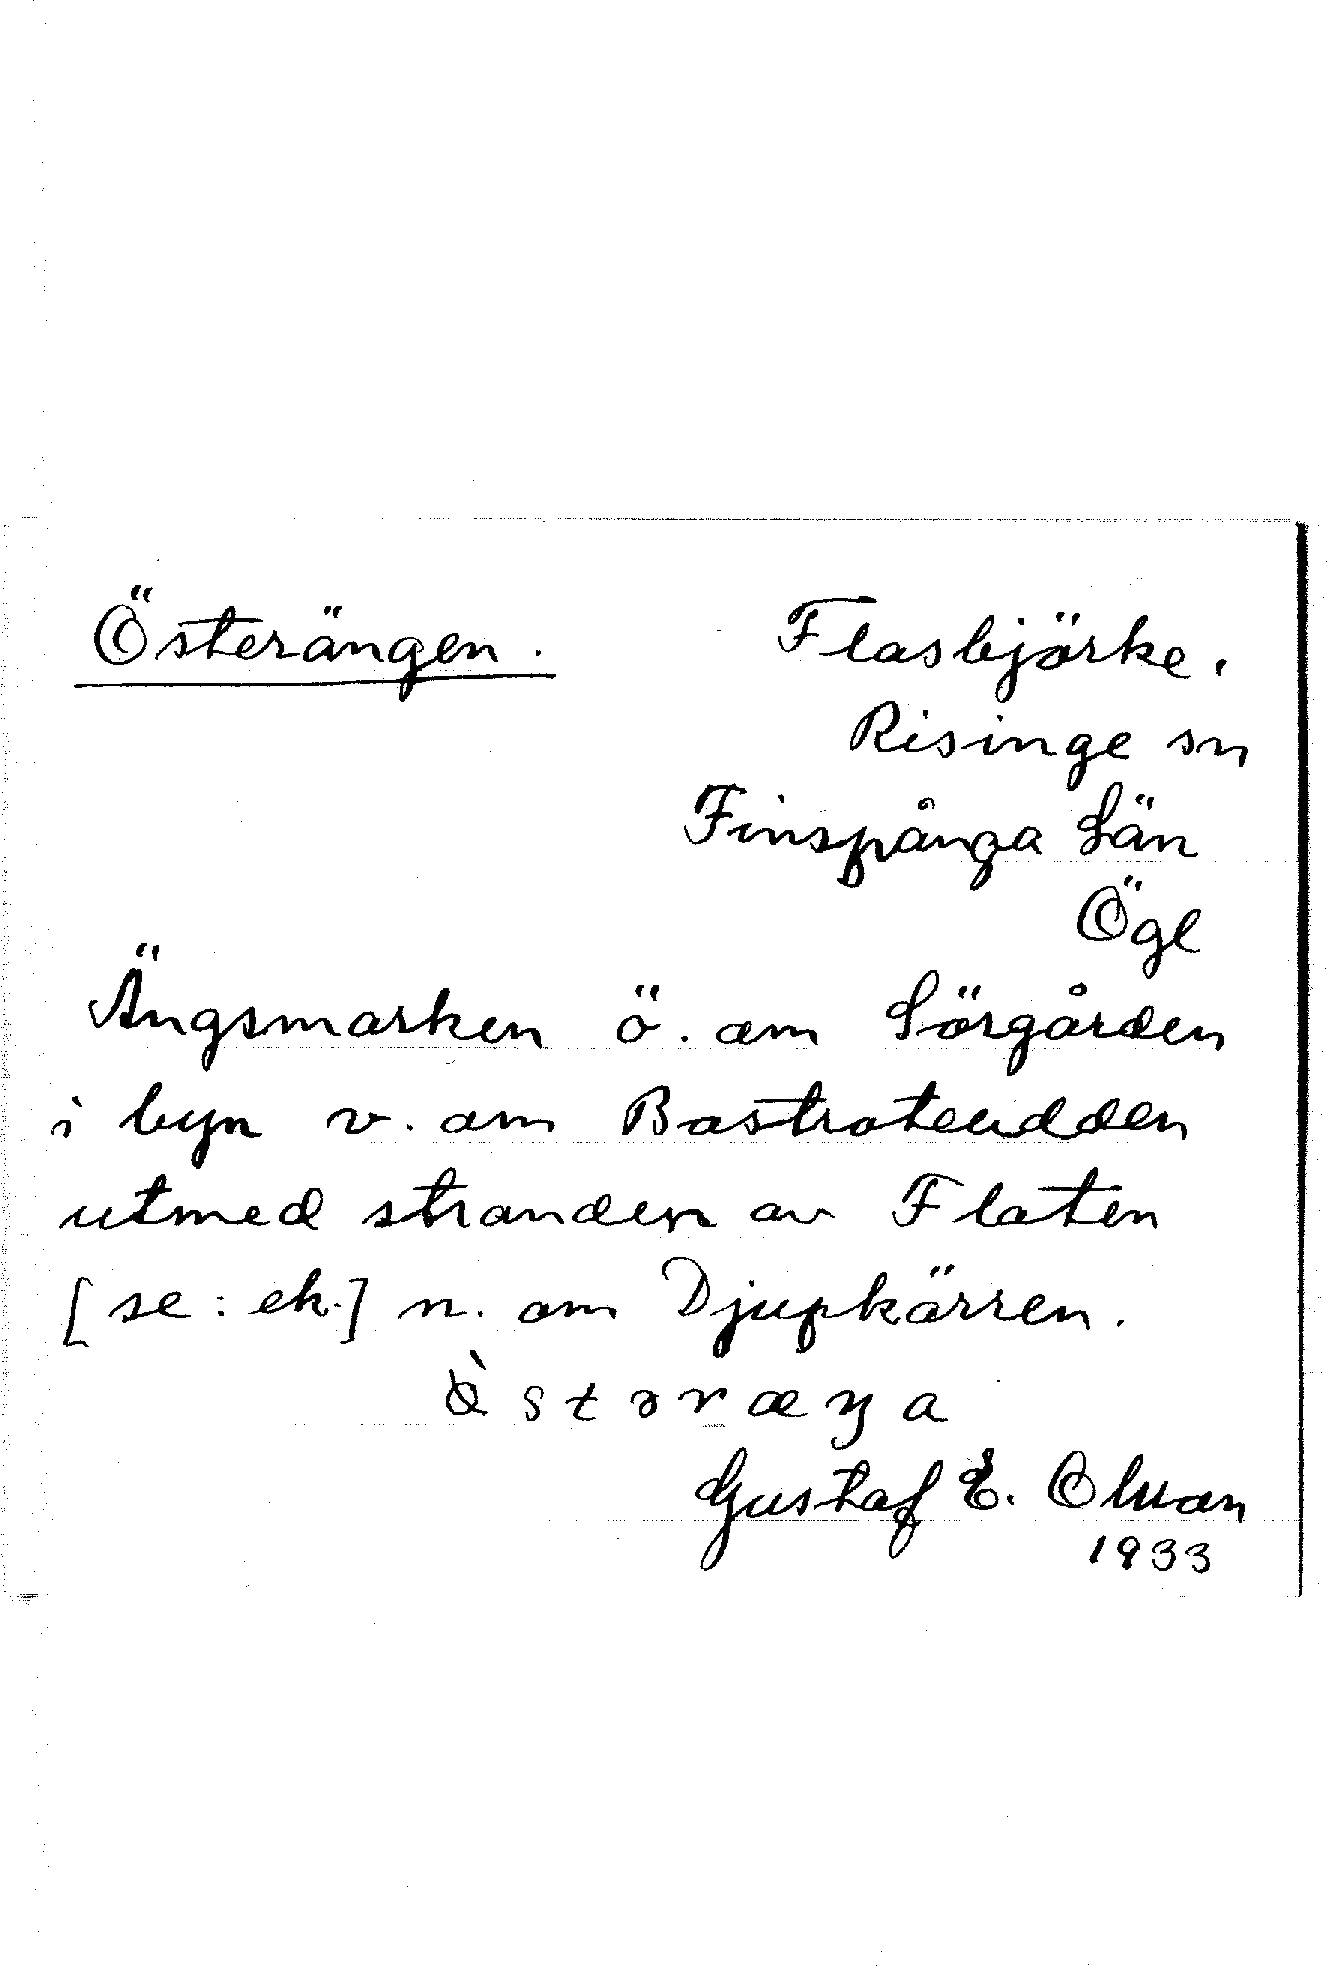 Österängen.
Flasbjörke.
Risinge sn
Finspånga Län
Ögl
Ängsmarken ö. om Sörgården
i byn v. om Bastroteudden
utmed stranden av Flaten
[se: ek.] n. om Djupkärren.
Gustaf E. Olsson
1933